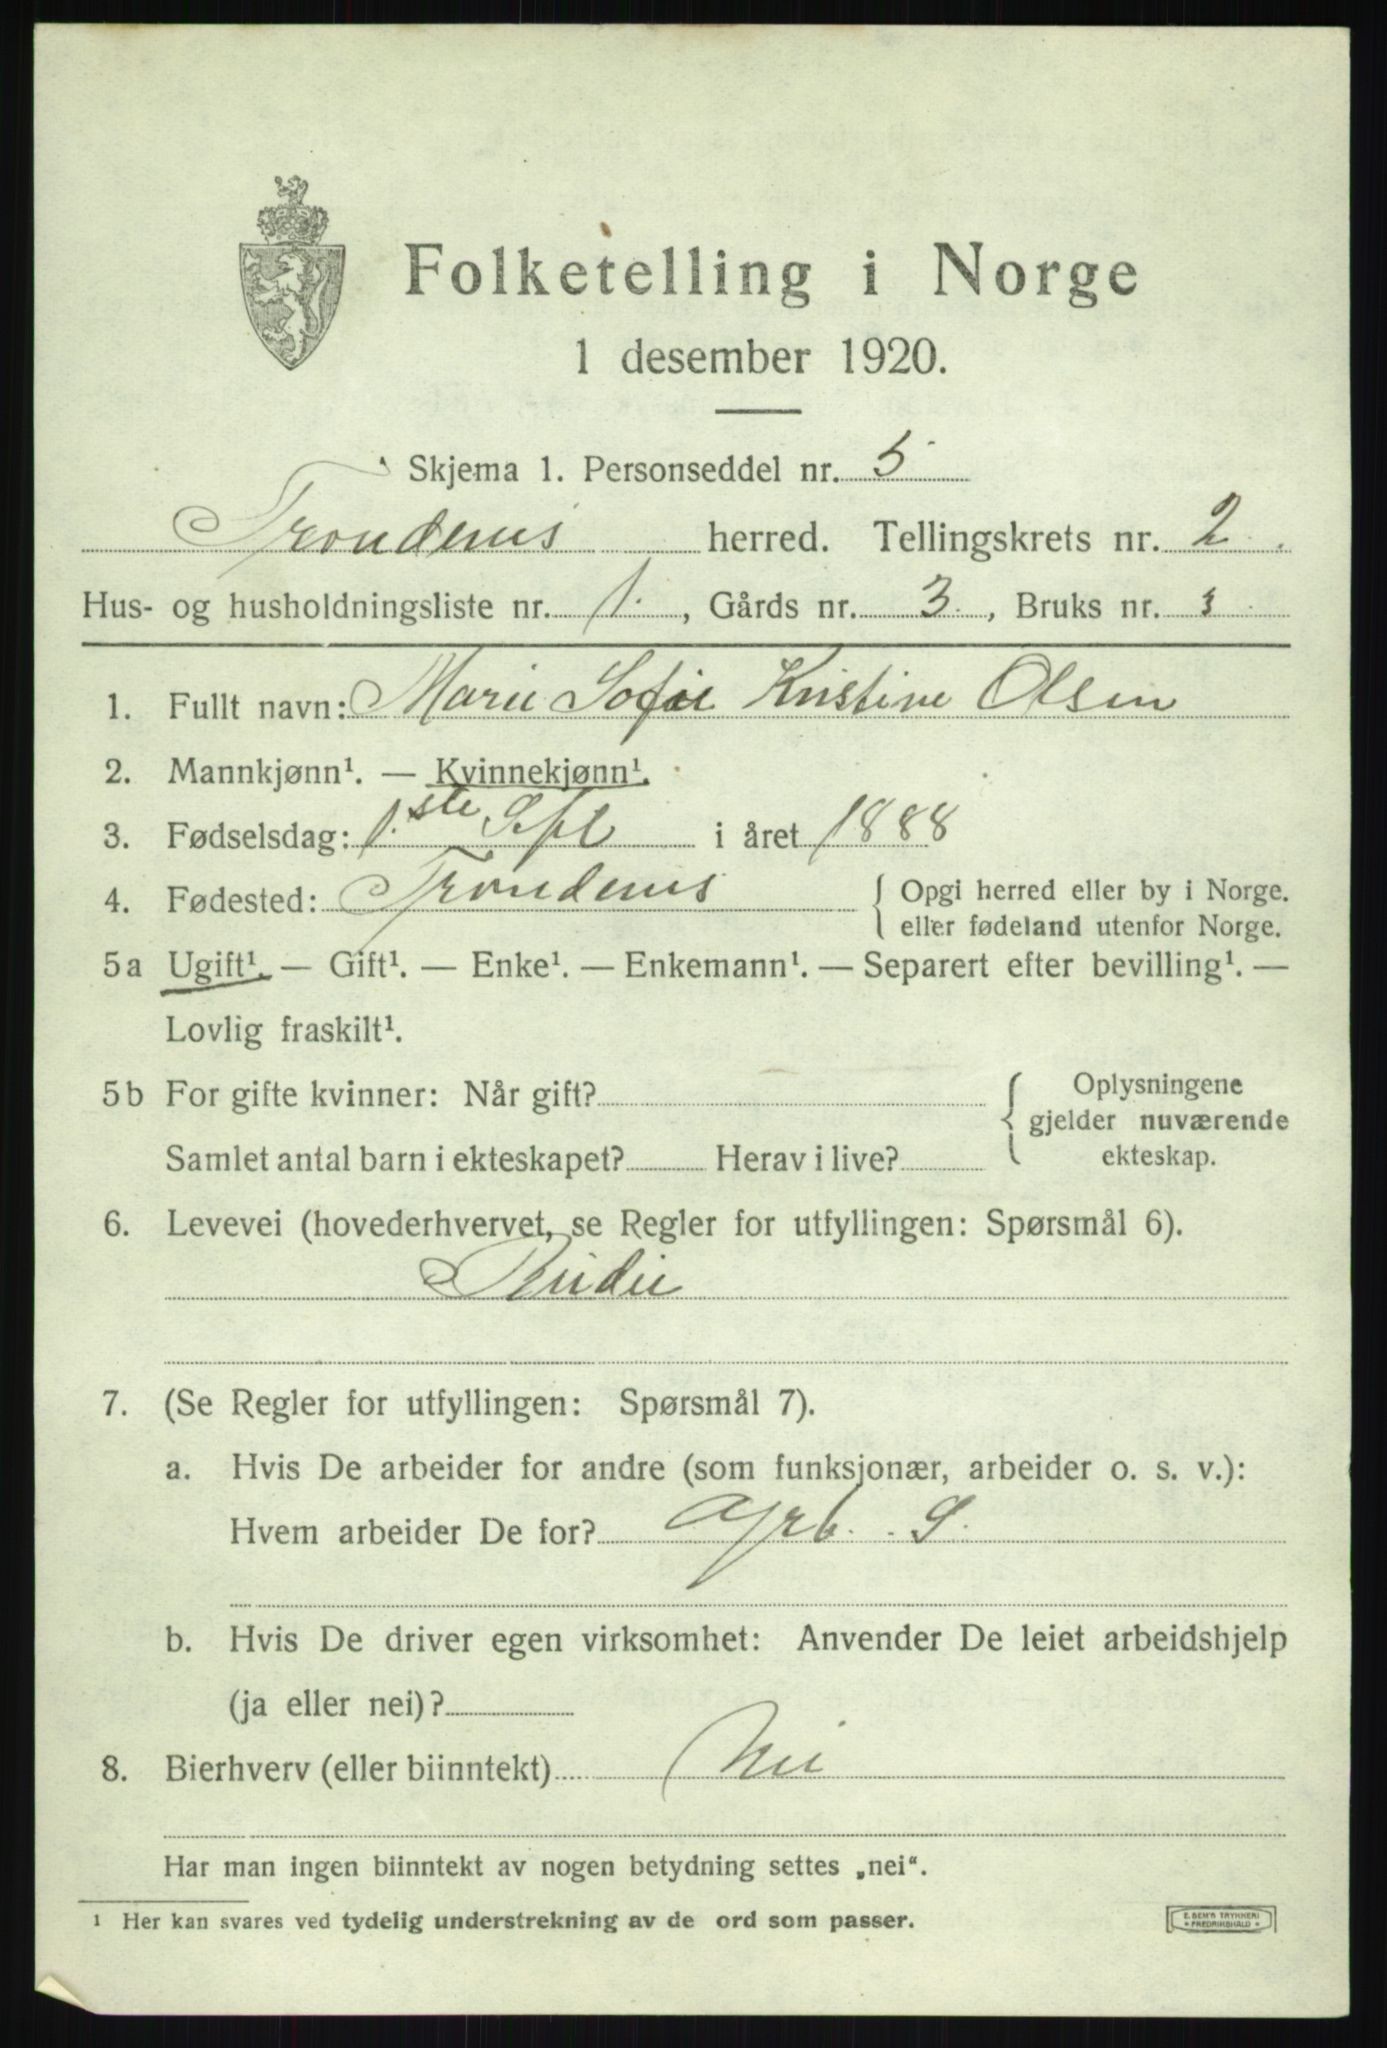 Folketelling i Norge
1 desember 1920.
Skjema 1. Personseddel nr. 5
Trondenes herred. Tellingskrets nr. 2.
Hus- og husholdningsliste nr. 1. , Gårds nr. 3. , Bruks nr.
1. Fullt navn: Marie Sofie Kristine Olsen
2. Mannkjønn¹. — Kvinnekjønn¹.
3. Fødselsdag: 1.ste Sept i året 1888
4. Fødested: Trondenes { Opgi herred eller by i Norge.
eller fødeland utenfor Norge.
5a Ugift¹. — Gift¹. — Enke¹. — Enkemann¹. — Separert efter bevilling¹. —
Lovlig fraskilt¹.
5b For gifte kvinner: Når gift? { Oplysningene
gjelder nuværende
Samlet antal barn i ekteskapet? Herav i live? ekteskap.
6. Levevei (hovederhvervet, se Regler for utfyllingen: Spørsmål 6).
7. (Se Regler for utfyllingen: Spørsmål 7).
a. Hvis De arbeider for andre (som funksjonær, arbeider o. s. v.):
Hvem arbeider De for?
b. Hvis De driver egen virksomhet: Anvender De leiet arbeidshjelp
(ja eller nei)?
8. Bierhverv (eller biinntekt) Nei
Har man ingen biinntekt av nogen betydning settes „nei“.
¹ Her kan svares ved tydelig understrekning av de ord som passer.
E. SEM'S TRYKKERI
* FREDRIKSHALD *